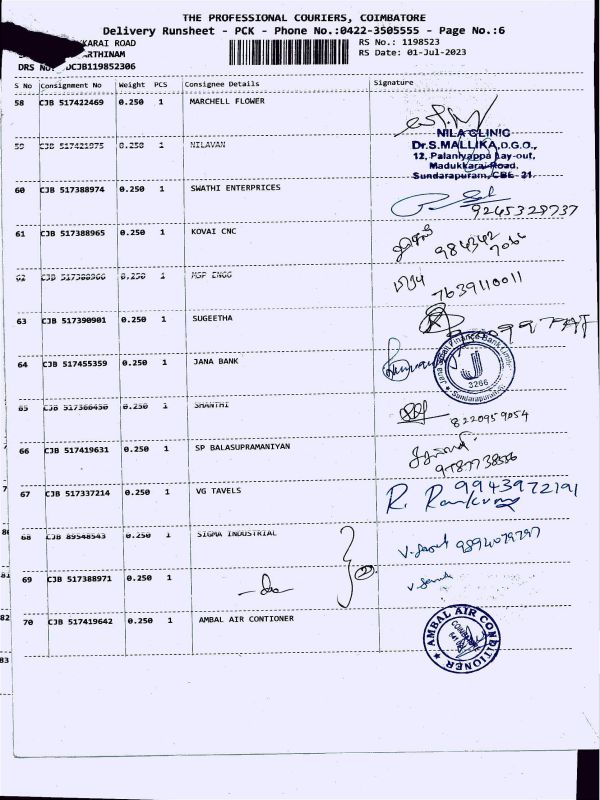 THE PROFESSIONAL COURIERS, COIMBATORE
Delivery Runsheet - PCK - Phone No.:0422-3505555 - Page No.:6
KARAI ROAD
RS No.: 1198523
ARTHINAM
RS Date: 01-Jul-2023
DRS No. DCJB119852306
S No Consignment No Weight PCS Consignee Details Signature
58 CJB 517422469 0.250 1 MARCHELL FLOWER
NILA CLINIC
59 CJB 517421975 0.250 1 NILAVAN
Dr.S.MALLIKA,D.G.O.,
12, Palaniyappa Lay-out,
Madukkarai Road,
Sundarapuram, CBE - 21.
60 CJB 517388974 0.250 1 SWATHI ENTERPRICES
9245328737
61 CJB 517388965 0.250 1 KOVAI CNC
984342
7066
62 CJB 517388966 0.250 1 MGP ENGG
7639110011
63 CJB 517390901 0.250 1 SUGEETHA
64 CJB 517455359 0.250 1 JANA BANK
Jana Small Finance Bank Limited
3266
Sundarapuram
65 CJB 517386450 0.250 1 SHANTHI
8220959054
66 CJB 517419631 0.250 1 SP BALASUPRAMANIYAN
67 CJB 517337214 0.250 1 VG TAVELS
9943972191
68 CJB 89548543 0.250 1 SIGMA INDUSTRIAL
69 CJB 517388971 0.250 1
70 CJB 517419642 0.250 1 AMBAL AIR CONTIONER
AMBAL AIR CONDITIONER
82
83